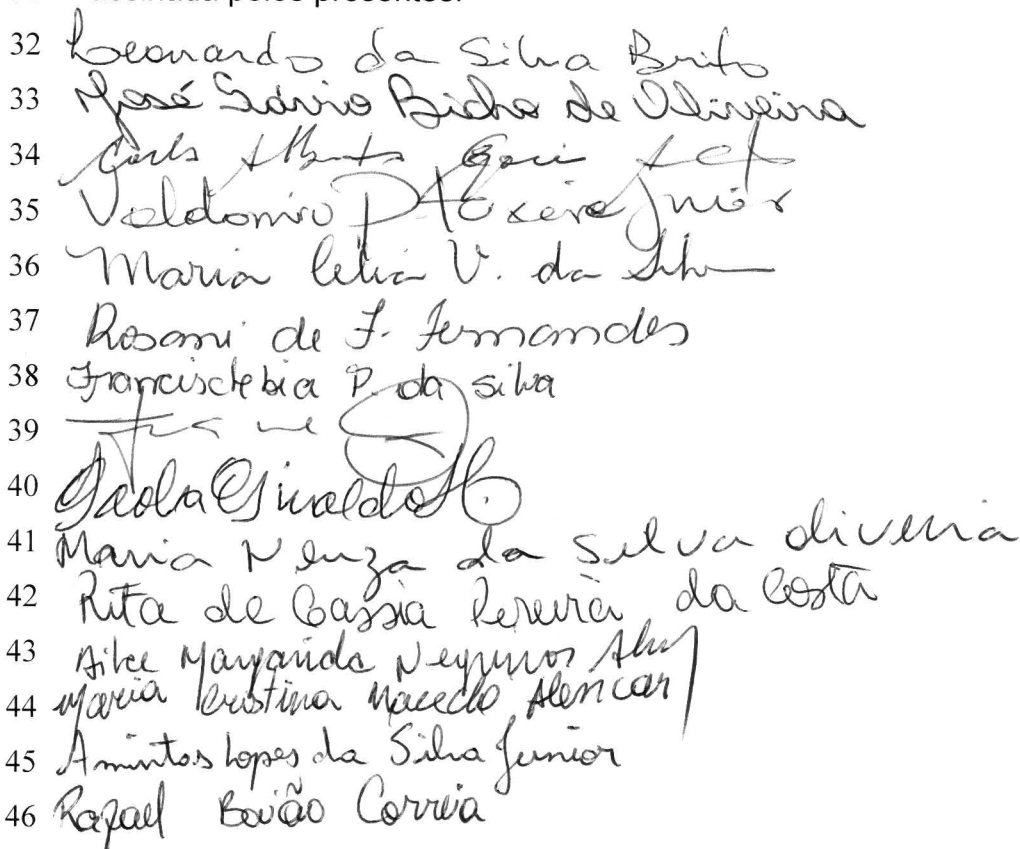 assinada pelos presentes.
32 Leonardo da Silva Brito
33 José Sávio Bicho de Oliveira
34 Carlos Alberto
35 Valdomiro P Teixeira Junior
36 Maria Célia V. da Silva
37 Rosani de F. Fernandes
38 Francisclebia P. da silva
39
40 Giraldo
41 Maria Neuza da Silva Oliveira
42 Rita de Cassia Pereira da Costa
43 Ailce Margarida Negreiros Alves
44 Maria Cristina Macedo Alencar
45 Amintas Lopes da Silva Junior
46 Rafael Baião Correia